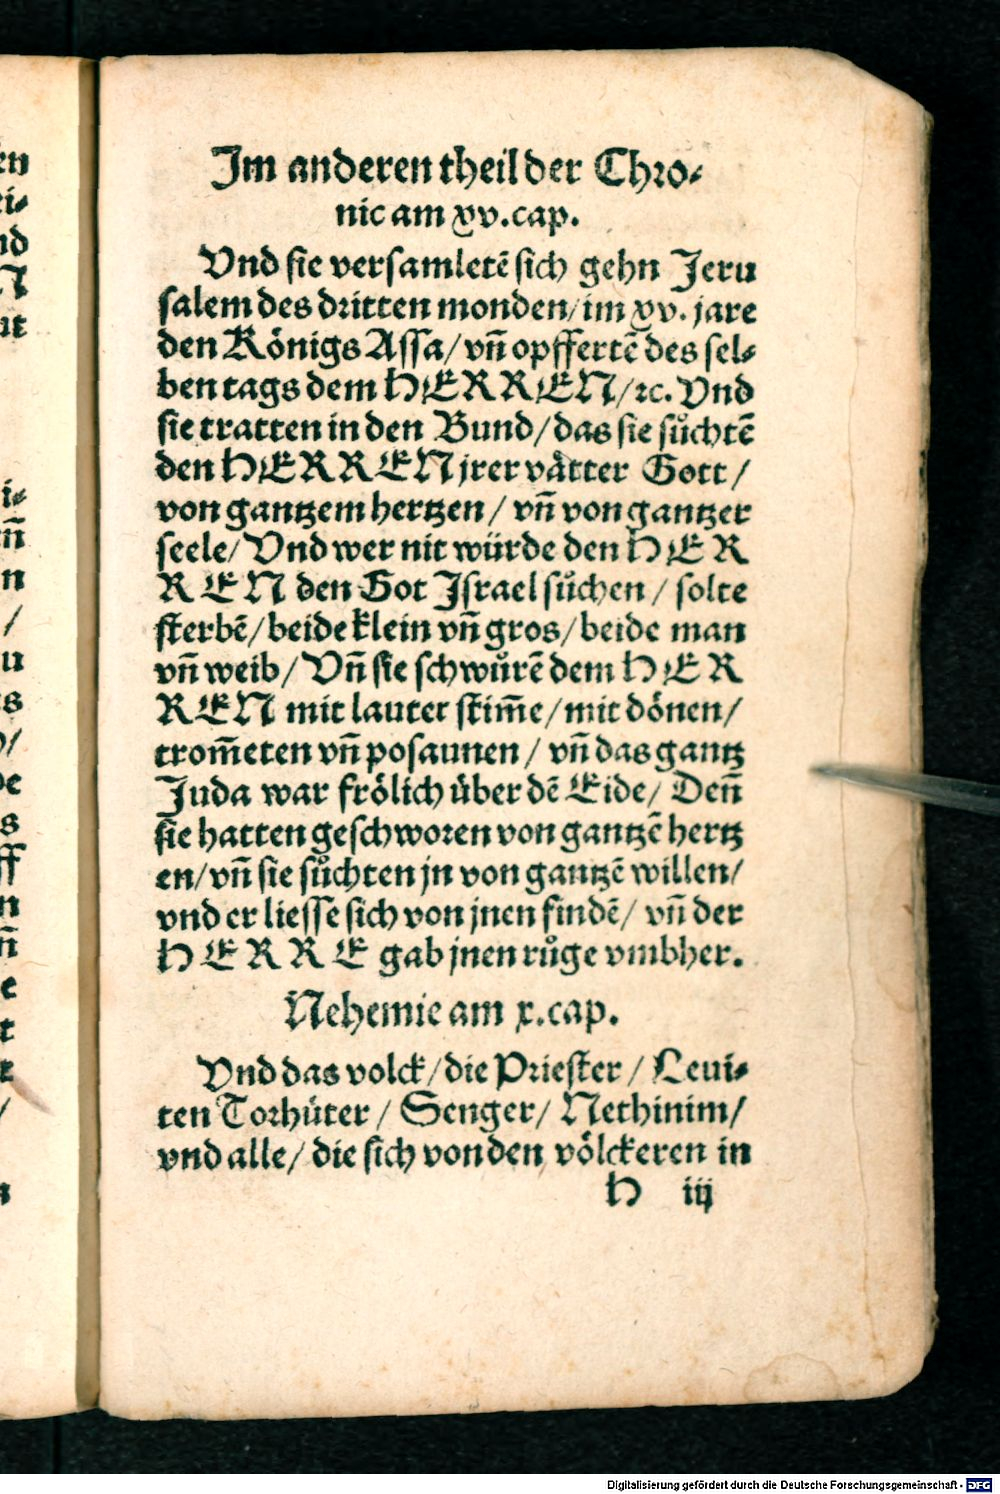 Im anderen theil der Chro⸗
nic am xv. cap.
Vnd sie versamletẽ sich gehn Jeru
salem des dritten monden/ im xv. jare
den Königs Assa/ vñ opffertẽ des sel⸗
ben tags dem HERREN/ ꝛc. Vnd
sie tratten in den Bund/ das sie sůchtẽ
den HERREN jrer vätter Gott/
von gantzem hertzen/ vñ von gantzer
seele/ Vnd wer nit würde den HER
REN den Got Israel sůchen/ solte
sterbẽ/ beide klein vñ gros/ beide man
vñ weib/ Vñ sie schwůrẽ dem HER
REN mit lauter stim̃e/ mit dönen/
trom̃eten vñ posaunen/ vñ das gantz
Juda war frölich über dẽ Eide/ Deñ
sie hatten geschworen von gantzẽ hertz
en/ vñ sie sůchten jn von gantzẽ willen/
vnd er liesse sich von jnen findẽ/ vñ der
HERRE gab jnen růge vmbher.
Nehemie am x. cap.
Vnd das volck/ die Priester/ Leui⸗
ten Torhüter/ Senger/ Nethinim/
vnd alle/ die sich von den völckeren in
H iij
Digitalisierung gefördert durch die Deutsche Forschungsgemeinschaft - DFG